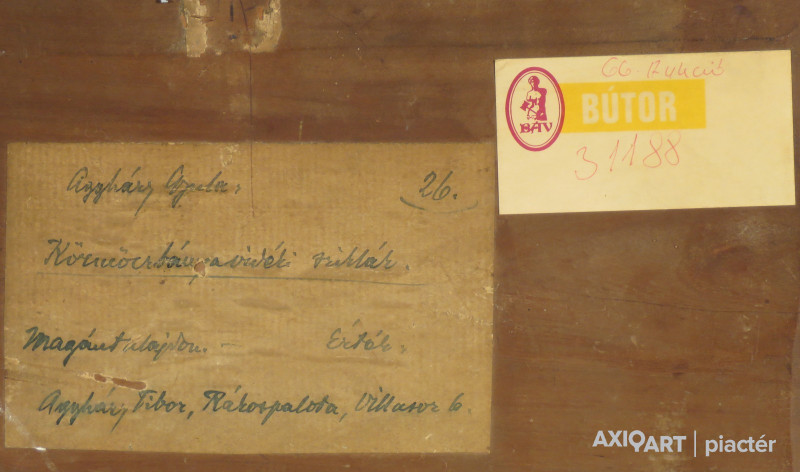 66 Aukció
BÁV
BÚTOR
31188
Aggházy Gyula: 26.
Körmöczbányavidéki sziklák.
Magántulajdon. – Érték:
Aggházy Tibor, Rákospalota, Villasor 6.
AXIOART | piactér